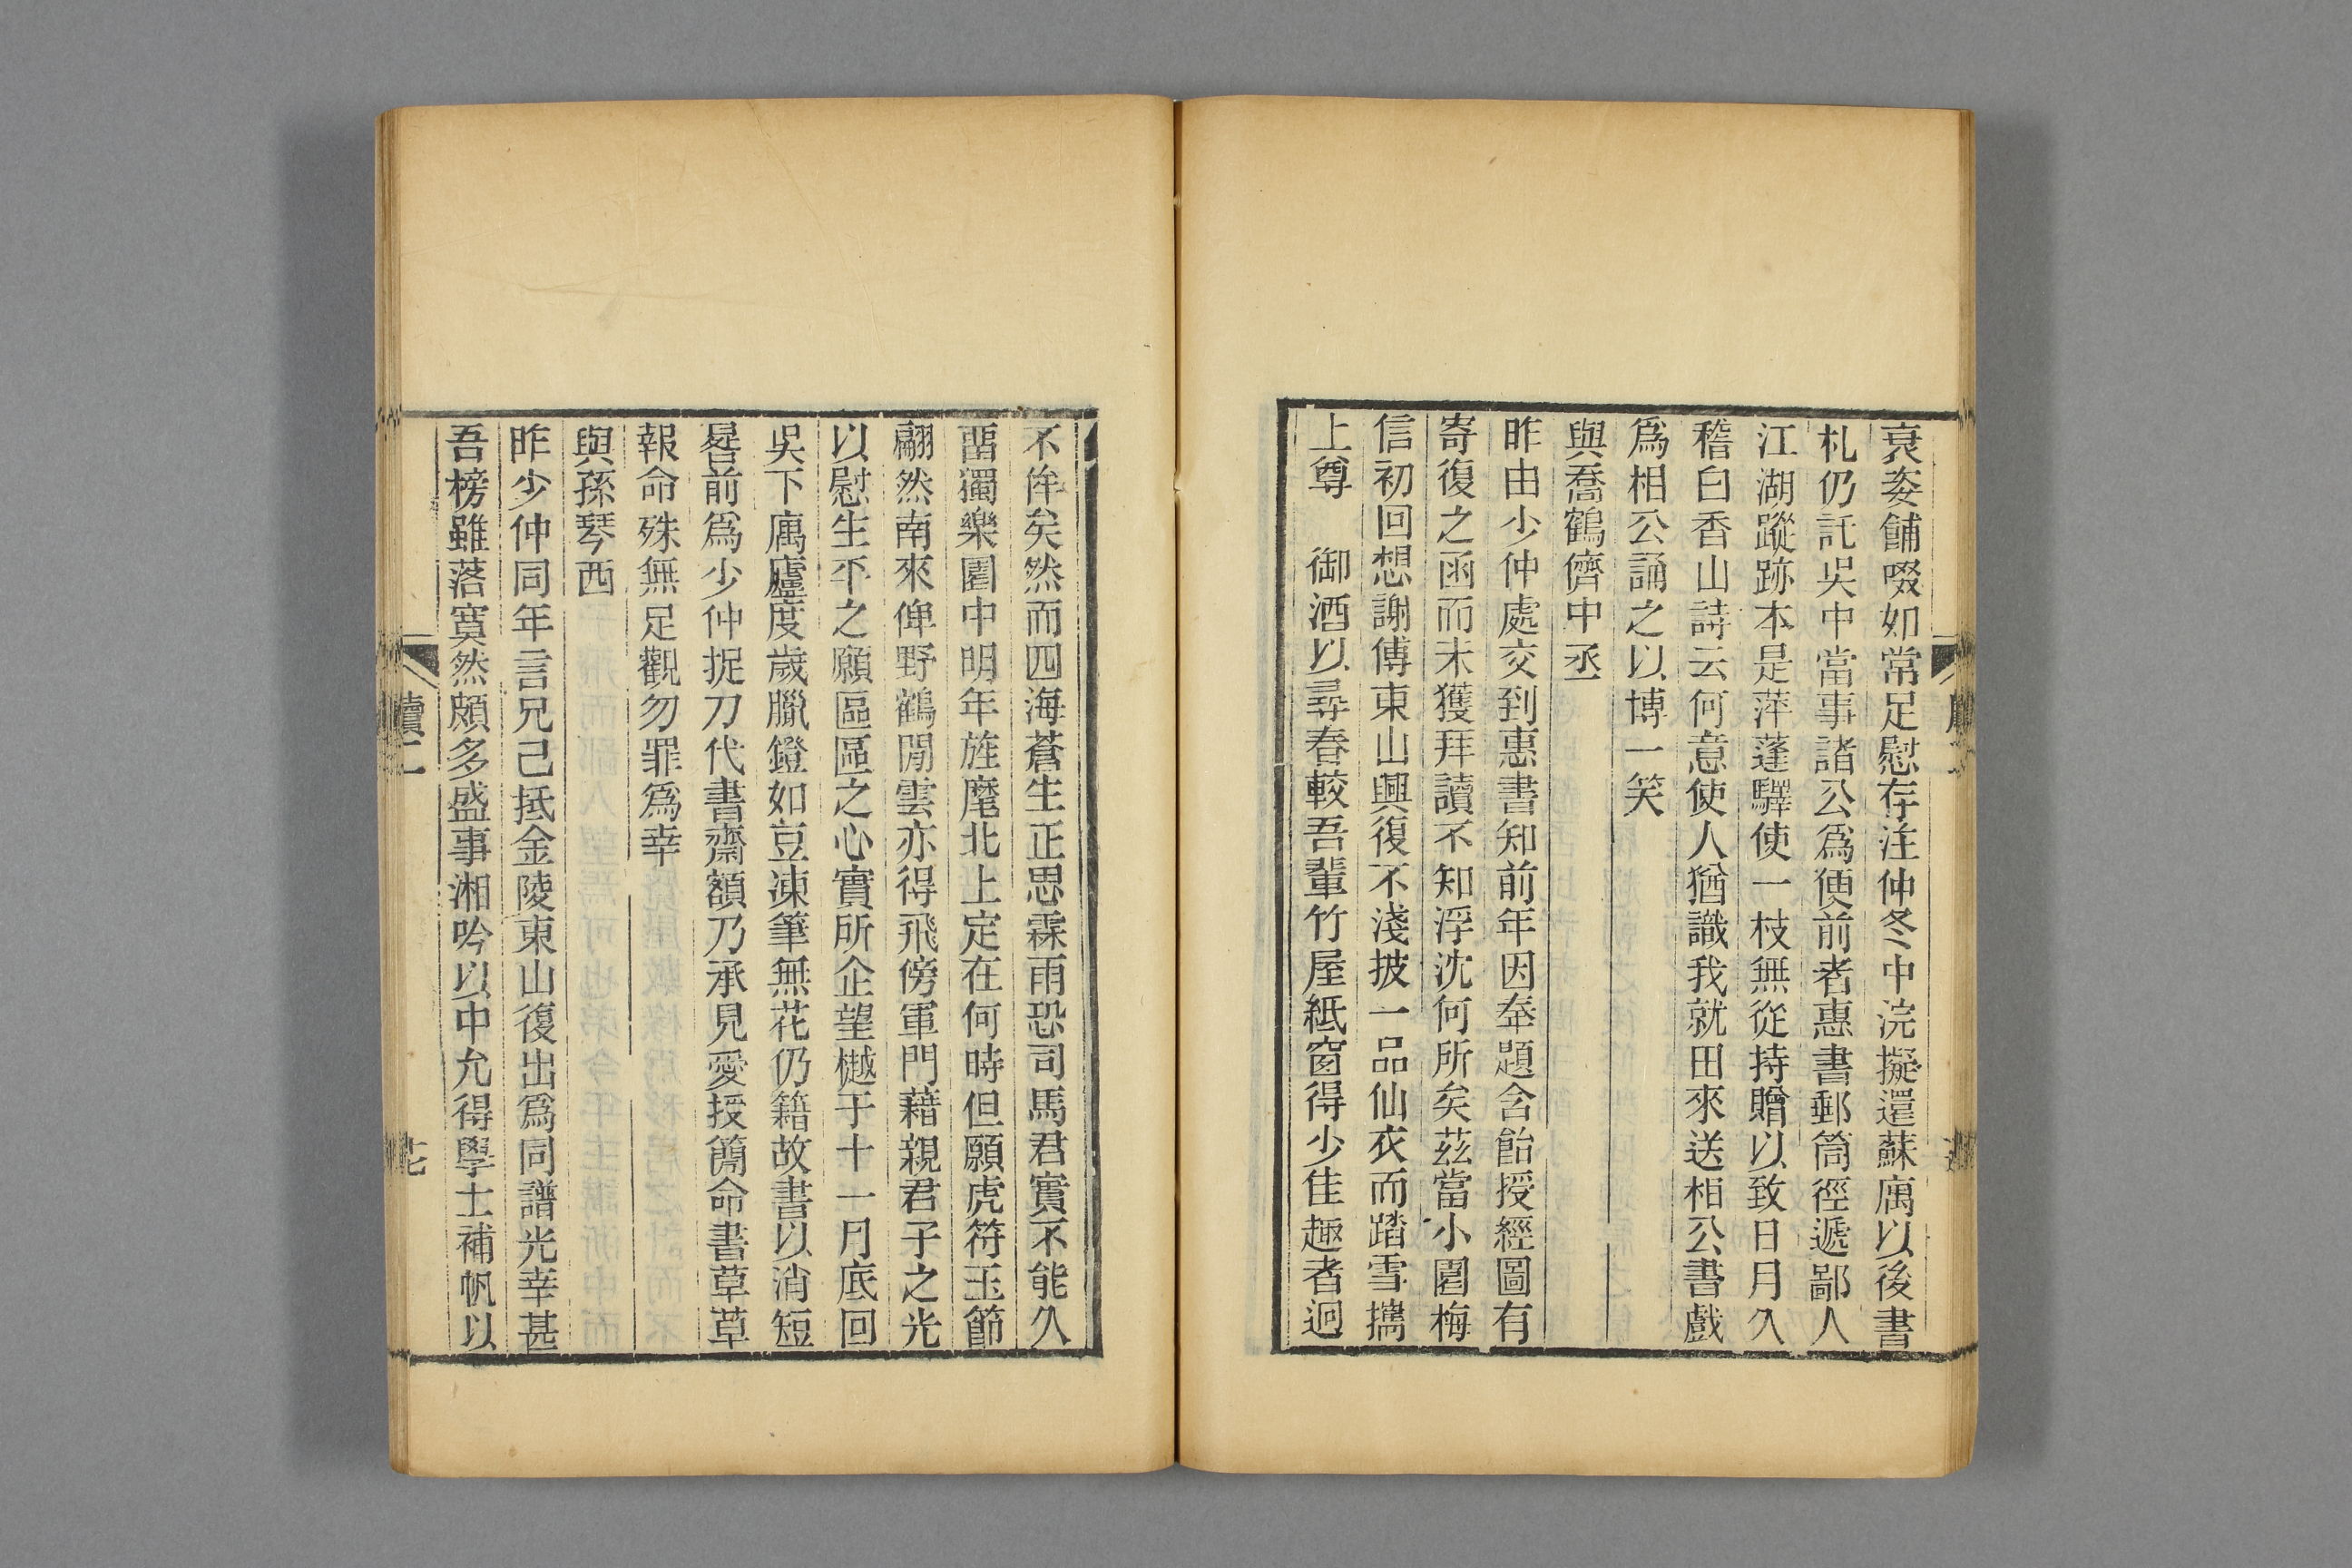 衰姿餔啜如常足慰存注仲冬中浣擬還蘇庽以後書
札仍託吴中當事諸公爲便前者惠書郵筒徑遞鄙人
江湖蹤跡本是萍蓬驛使一枝無從持贈以致日月久
稽白香山詩云何意使人猶識我就田來送相公書戲
爲相公誦之以博一笑
與喬鶴儕中丞
昨由少仲處交到惠書知前年因奉題含飴授經圖有
寄復之函而未獲拜讀不知浮沈何所矣茲當小園梅
信初回想謝傅東山興復不淺披一品仙衣而踏雪攜
上尊　御酒以尋春較吾輩竹屋紙窗得少佳趣者迥
不侔矣然而四海蒼生正思霖雨恐司馬君實不能久
畱獨樂園中明年旌麾北上定在何時但願虎符玉節
翩然南來俾野鶴閒雲亦得飛傍軍門藉親君子之光
以慰生平之願區區之心實所企望樾于十一月底回
吴下庽廬度歲臘鐙如豆凍筆無花仍籍故書以消短
晷前爲少仲捉刀代書齋額乃承見愛授簡命書草草
報命殊無足觀勿罪爲幸
與孫琴西
昨少仲同年言兄已抵金陵東山復出爲同譜光幸甚
吾榜雖落寞然頗多盛事湘吟以中允得學士補帆以
牘二
七